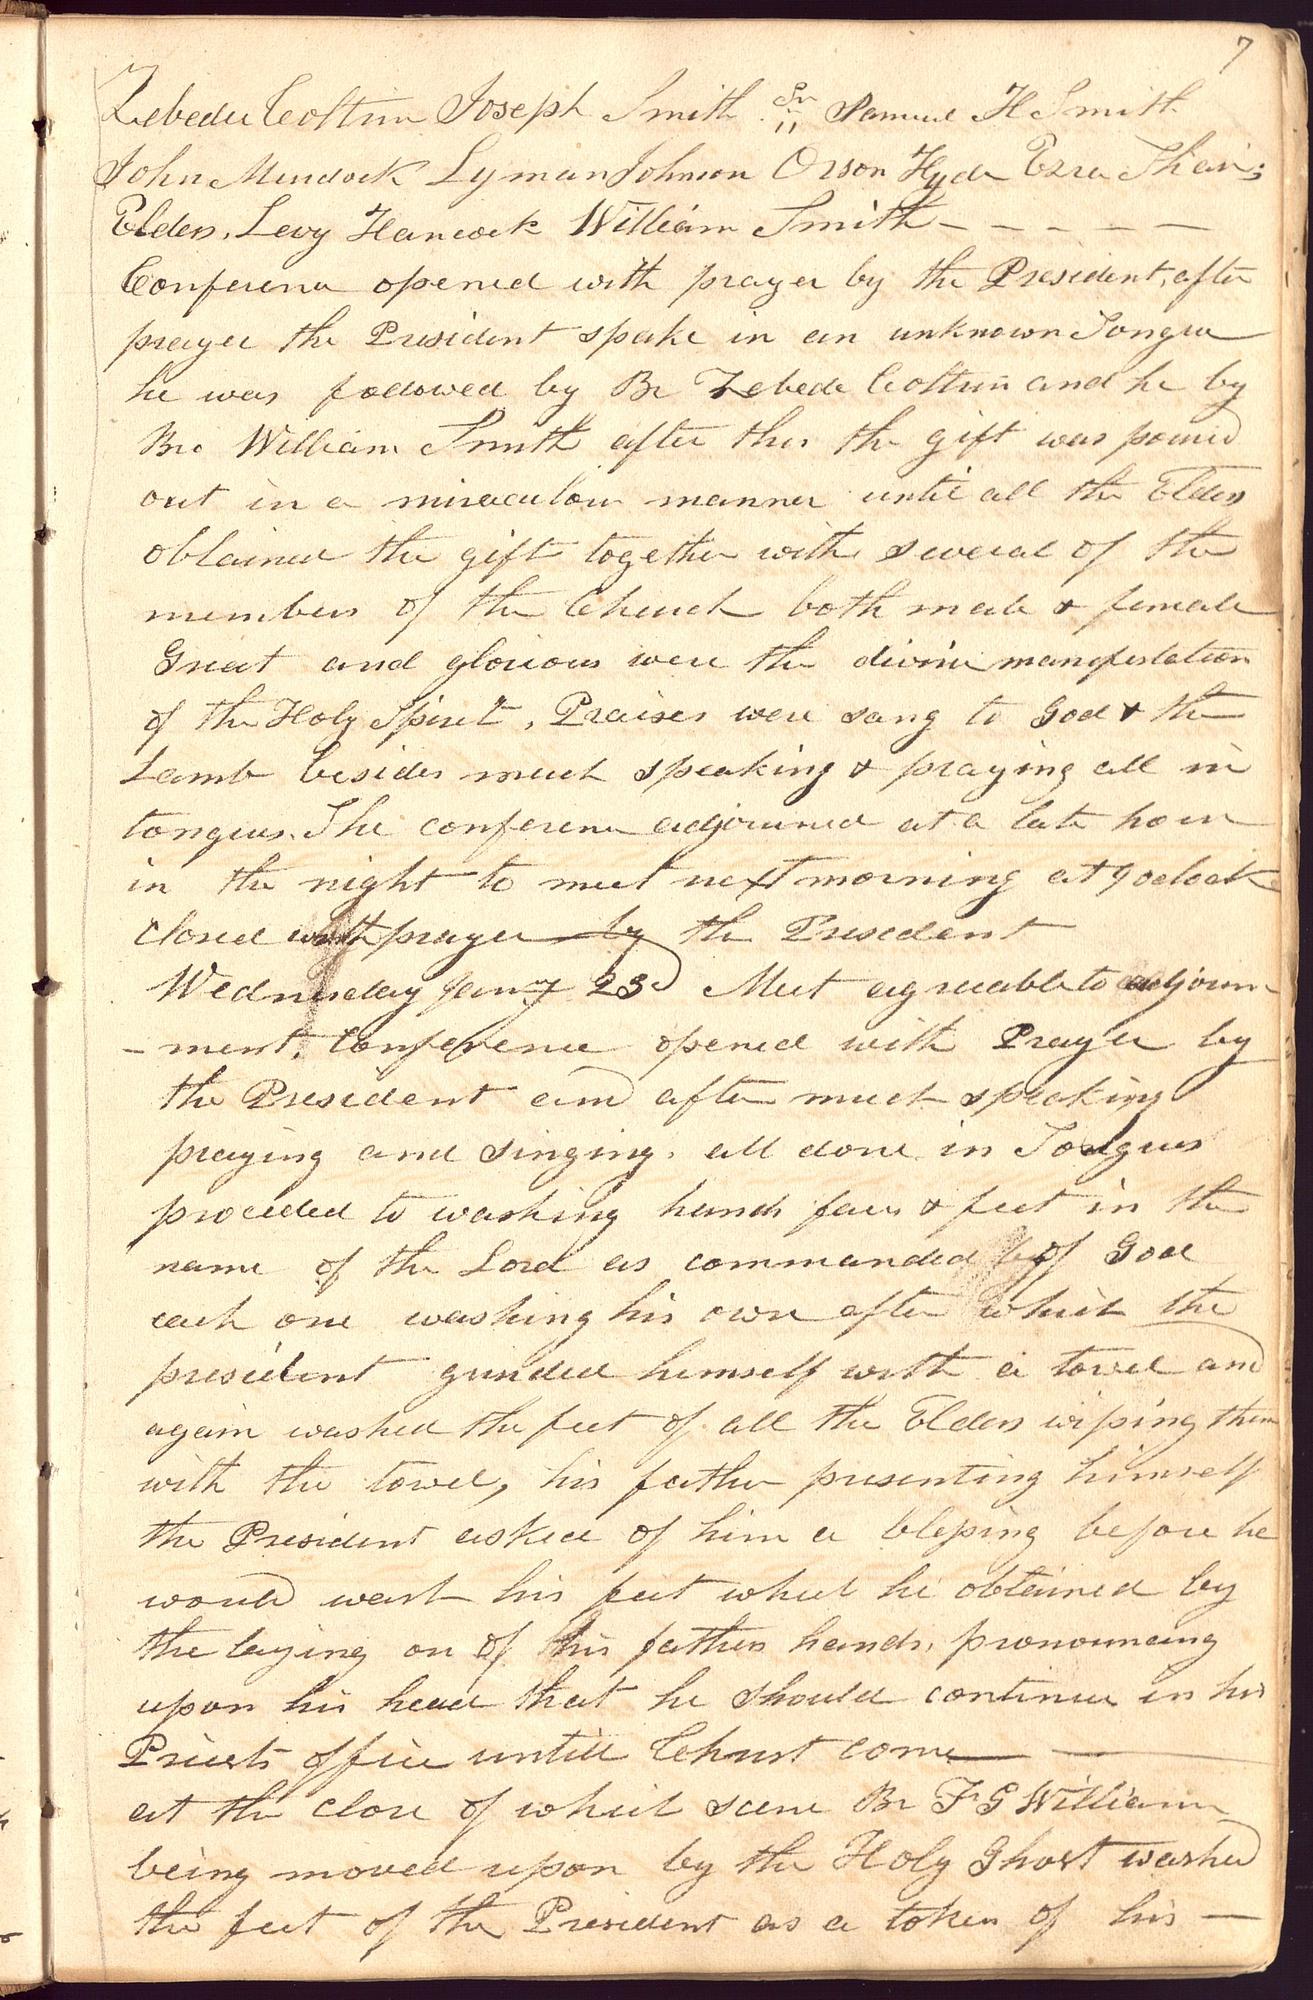 7
Zebedee Coltrin Joseph Smith Sr. Samuel H Smith
John Murdock Lyman Johnson Orson Hyde Ezra Thair;
Elders, Levy Hancock William Smith – – – – –
Conference opened with prayer by the President, after
prayer the President spake in an unknown Tongue
he was followed by Br Zebede Coltrin and he by
Bro William Smith after this the gift was poured
out in a miraculous manner until all the Elders
obtained the gift together with several of the
members of the Church both male & female
Great and glorious were the divine manifestation
of the Holy Spirit, Praises were sang to God & the
Lamb besides much speaking & praying all in
tongues. The conference adjourned at a late hour
in the night to meet next morning at 9 oclock
closed with prayer by the President
Wednesday Jany 23d Meet agreeable to adjourn-
-ment. Conference opened with Prayer by
the President and after much speaking
praying and singing, all done in Tongues
proceded to washing hands faces & feet in the
name of the Lord as commanded of God
each one washing his own after which the
president girded himself with a towel and
again washed the feet of all the Elders wiping them
with the towel, his father presenting himself
the President asked of him a blessing before he
would wash his feet which he obtained by
the laying on of his fathers hands, pronouncing
upon his head that he should continue in his
Priests office untill Christ come – –
at the close of which scene Br F G Williams
being moved upon by the Holy Ghost washed
the feet of the President as a token of his –